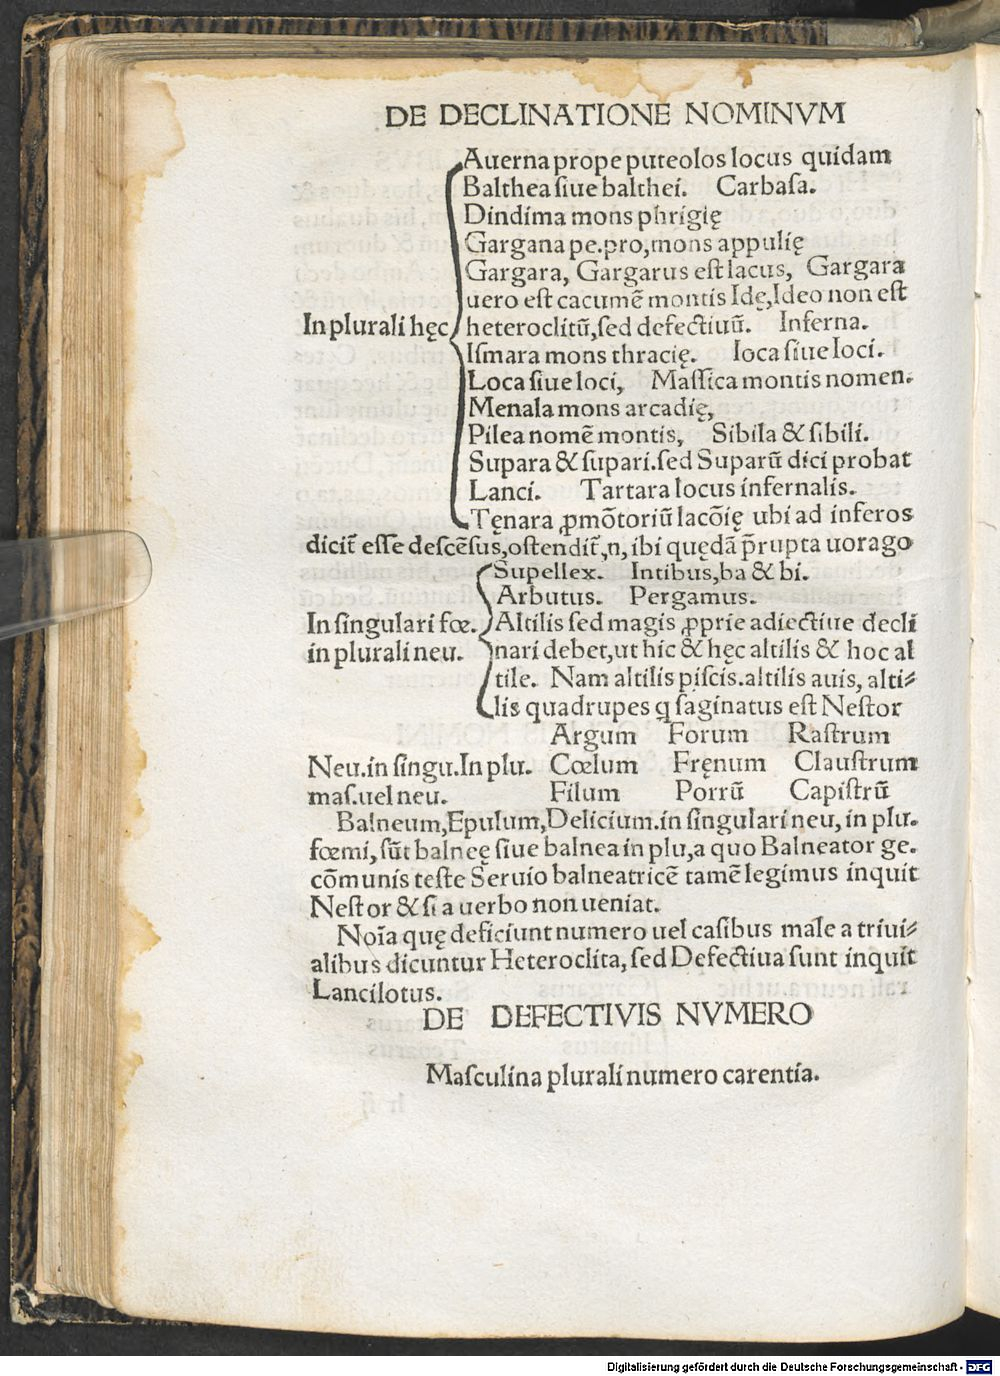 DE DECLINATIONE NOMINVM
Auerna prope puteolos locus quidam
Balthea siue balthei. Carbasa.
Dindima mons phrigię
Gargana pe.pro,mons appulię
Gargara, Gargarus est lacus, Gargara
uero est cacumē montis Idę,Ideo non est
In plurali hęc heteroclitū,sed defectiuū. Inferna.
Ismara mons thracię. Ioca siue loci.
Loca siue loci, Massica montis nomen.
Menala mons arcadię,
Pilea nomē montis, Sibila & sibili.
Supara & supari.sed Suparū dici probat
Lanci. Tartara locus infernalis.
Tęnara ꝓmōtoriū lacōię ubi ad inferos
dicit̄ esse descēsus,ostendit̄,n, ibi quędā p̄rupta uorago
Supellex. Intibus,ba & bi.
Arbutus. Pergamus.
In singulari fœ. Altilis sed magis ꝓprie adiectiue decli
in plurali neu. nari debet,ut hic & hęc altilis & hoc al
tile. Nam altilis piscis.altilis auis, alti⸗
lis quadrupes q saginatus est Nestor
Argum Forum Rastrum
Neu.in singu.In plu. Cœlum Fręnum Claustrum
mas.uel neu. Filum Porrū Capistrū
Balneum,Epulum,Delicium.in singulari neu, in plu.
fœmi, sūt balneę siue balnea in plu,a quo Balneator ge.
cōmunis teste Seruio balneatricē tamē legimus inquit
Nestor & si a uerbo non ueniat.
Noīa quę deficiunt numero uel casibus male a triui⸗
alibus dicuntur Heteroclita, sed Defectiua sunt inquit
Lancilotus.
DE DEFECTIVIS NVMERO
Masculina plurali numero carentia.
Digitalisierung gefördert durch die Deutsche Forschungsgemeinschaft - DFG